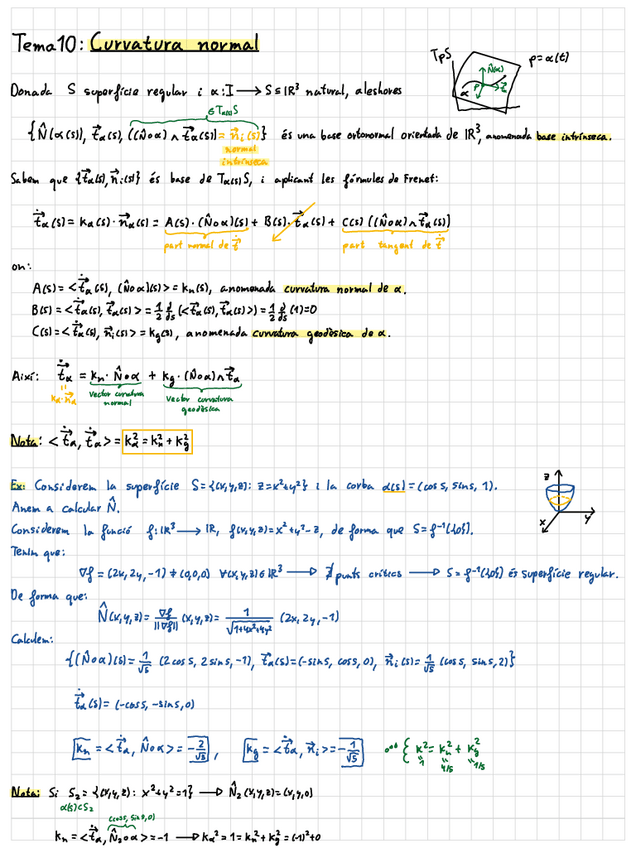 Tema 10: Curvatura normal
TpS p=α(t)
N̂(α) t⃗ α p
Donada S superfície regular i α: I → S ⊆ ℝ³ natural, aleshores
∈ Tα(s)S
{N̂(α(s)), t⃗α(s), ((N̂∘α) ∧ t⃗α(s)) = n⃗i(s)} és una base ortonormal orientada de ℝ³, anomenada base intrínseca.
normal
intrínseca
Sabem que {t⃗α(s), n⃗i(s)} és base de Tα(s)S, i aplicant les fórmules de Frenet:
ṫ⃗α(s) = kα(s)·n⃗α(s) = A(s)·(N̂∘α)(s) + B(s)·t⃗α(s) + C(s)((N̂∘α)∧t⃗α(s))
part normal de ṫ⃗ part tangent de ṫ⃗
on:
A(s) = <ṫ⃗α(s), (N̂∘α)(s)> = kn(s), anomenada curvatura normal de α.
B(s) = <ṫ⃗α(s), t⃗α(s)> = 1/2 d/ds (<t⃗α(s), t⃗α(s)>) = 1/2 d/ds (1) = 0
C(s) = <ṫ⃗α(s), n⃗i(s)> = kg(s), anomenada curvatura geodèsica de α.
Així: ṫ⃗α = kn·N̂∘α + kg·(N̂∘α)∧t⃗α
= kα·n⃗α vector curvatura normal vector curvatura geodèsica
Nota: <ṫ⃗α, ṫ⃗α> = kα² = kn² + kg²
Ex: Considerem la superfície S = {(x,y,z): z = x²+y²} i la corba α(s) = (cos s, sin s, 1).
z y x
Anem a calcular N̂.
Considerem la funció f: ℝ³ → ℝ, f(x,y,z) = x²+y²-z, de forma que S = f⁻¹({0}).
Tenim que:
∇f = (2x, 2y, -1) ≠ (0,0,0) ∀(x,y,z) ∈ ℝ³ → ∄ punts crítics → S = f⁻¹({0}) és superfície regular.
De forma que:
N̂(x,y,z) = ∇f/||∇f|| (x,y,z) = 1/√(1+4x²+4y²) (2x, 2y, -1)
Calculem:
{(N̂∘α)(s) = 1/√5 (2cos s, 2sin s, -1), t⃗α(s) = (-sin s, cos s, 0), n⃗i(s) = 1/√5 (cos s, sin s, 2)}
ṫ⃗α(s) = (-cos s, -sin s, 0)
kn = <ṫ⃗α, N̂∘α> = -2/√5, kg = <ṫ⃗α, n⃗i> = -1/√5 { k² = kn² + kg²
1 4/5 1/5
Nota: Si S₂ = {(x,y,z): x²+y²=1} → N̂₂(x,y,z) = (x,y,0)
α(s) ⊂ S₂ (cos s, sin s, 0)
kn = <ṫ⃗α, N̂₂∘α> = -1 → kα² = 1 = kn² + kg² = (-1)² + 0